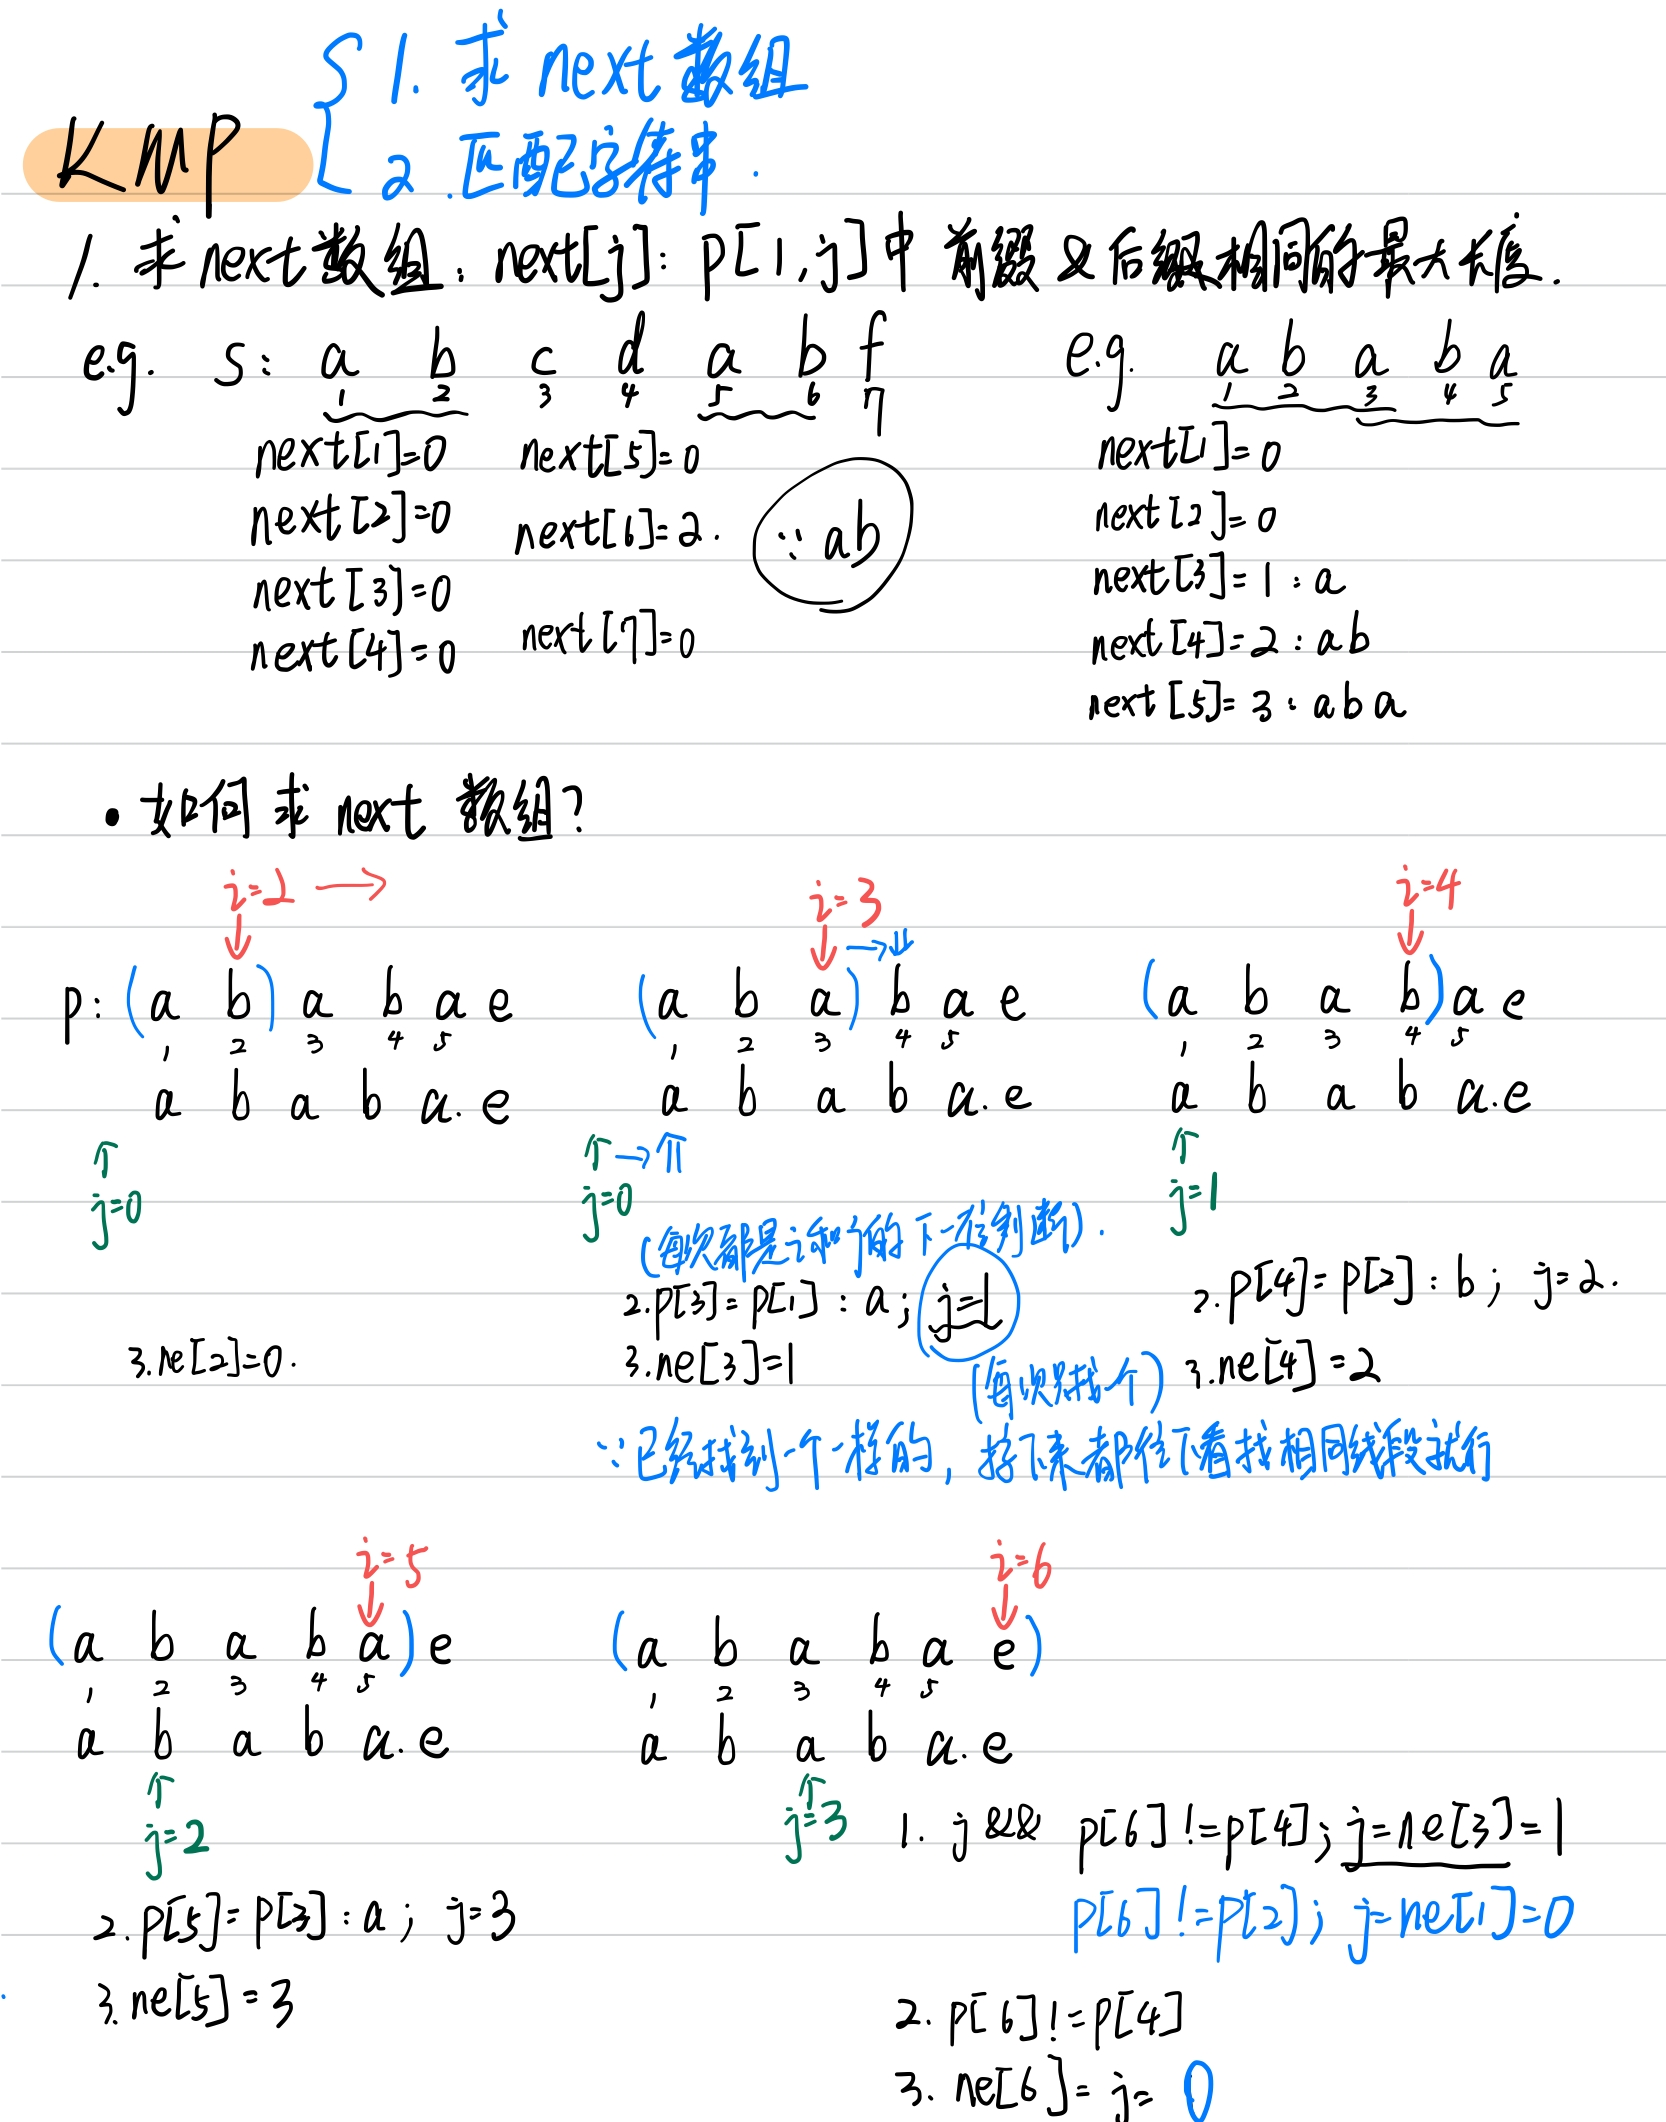 KMP
1. 求 next 数组
2. 匹配字符串.
1. 求 next 数组: next[j]: p[1,j]中 前缀 & 后缀相同的最大长度.
e.g. S: a b c d a b f
1 2 3 4 5 6 7
next[1]=0 next[5]=0
next[2]=0 next[6]=2. ∵ ab
next[3]=0
next[4]=0 next[7]=0
e.g. a b a b a
1 2 3 4 5
next[1]=0
next[2]=0
next[3]=1 : a
next[4]=2 : ab
next[5]=3 : aba
• 如何求 next 数组?
i=2 →
p: (a b) a b a e
1 2 3 4 5
a b a b a. e
j=0
3. ne[2]=0.
i=3
(a b a) b a e
1 2 3 4 5
a b a b a. e
j=0
(每次都是i和j的下一位判断).
2. p[3]=p[1] : a; j=1
3. ne[3]=1
(每次只找一个)
i=4
(a b a b) a e
1 2 3 4 5
a b a b a. e
j=1
2. p[4]=p[2] : b; j=2.
3. ne[4]=2
∵已经找到一个一样的, 接下来都往下看找相同线段就行
i=5
(a b a b a) e
1 2 3 4 5
a b a b a. e
j=2
2. p[5]=p[3] : a; j=3
3. ne[5]=3
i=6
(a b a b a e)
1 2 3 4 5
a b a b a. e
j=3
1. j && p[6]!=p[4]; j=ne[3]=1
p[6]!=p[2]; j=ne[1]=0
2. p[6]!=p[4]
3. ne[6]=j=0